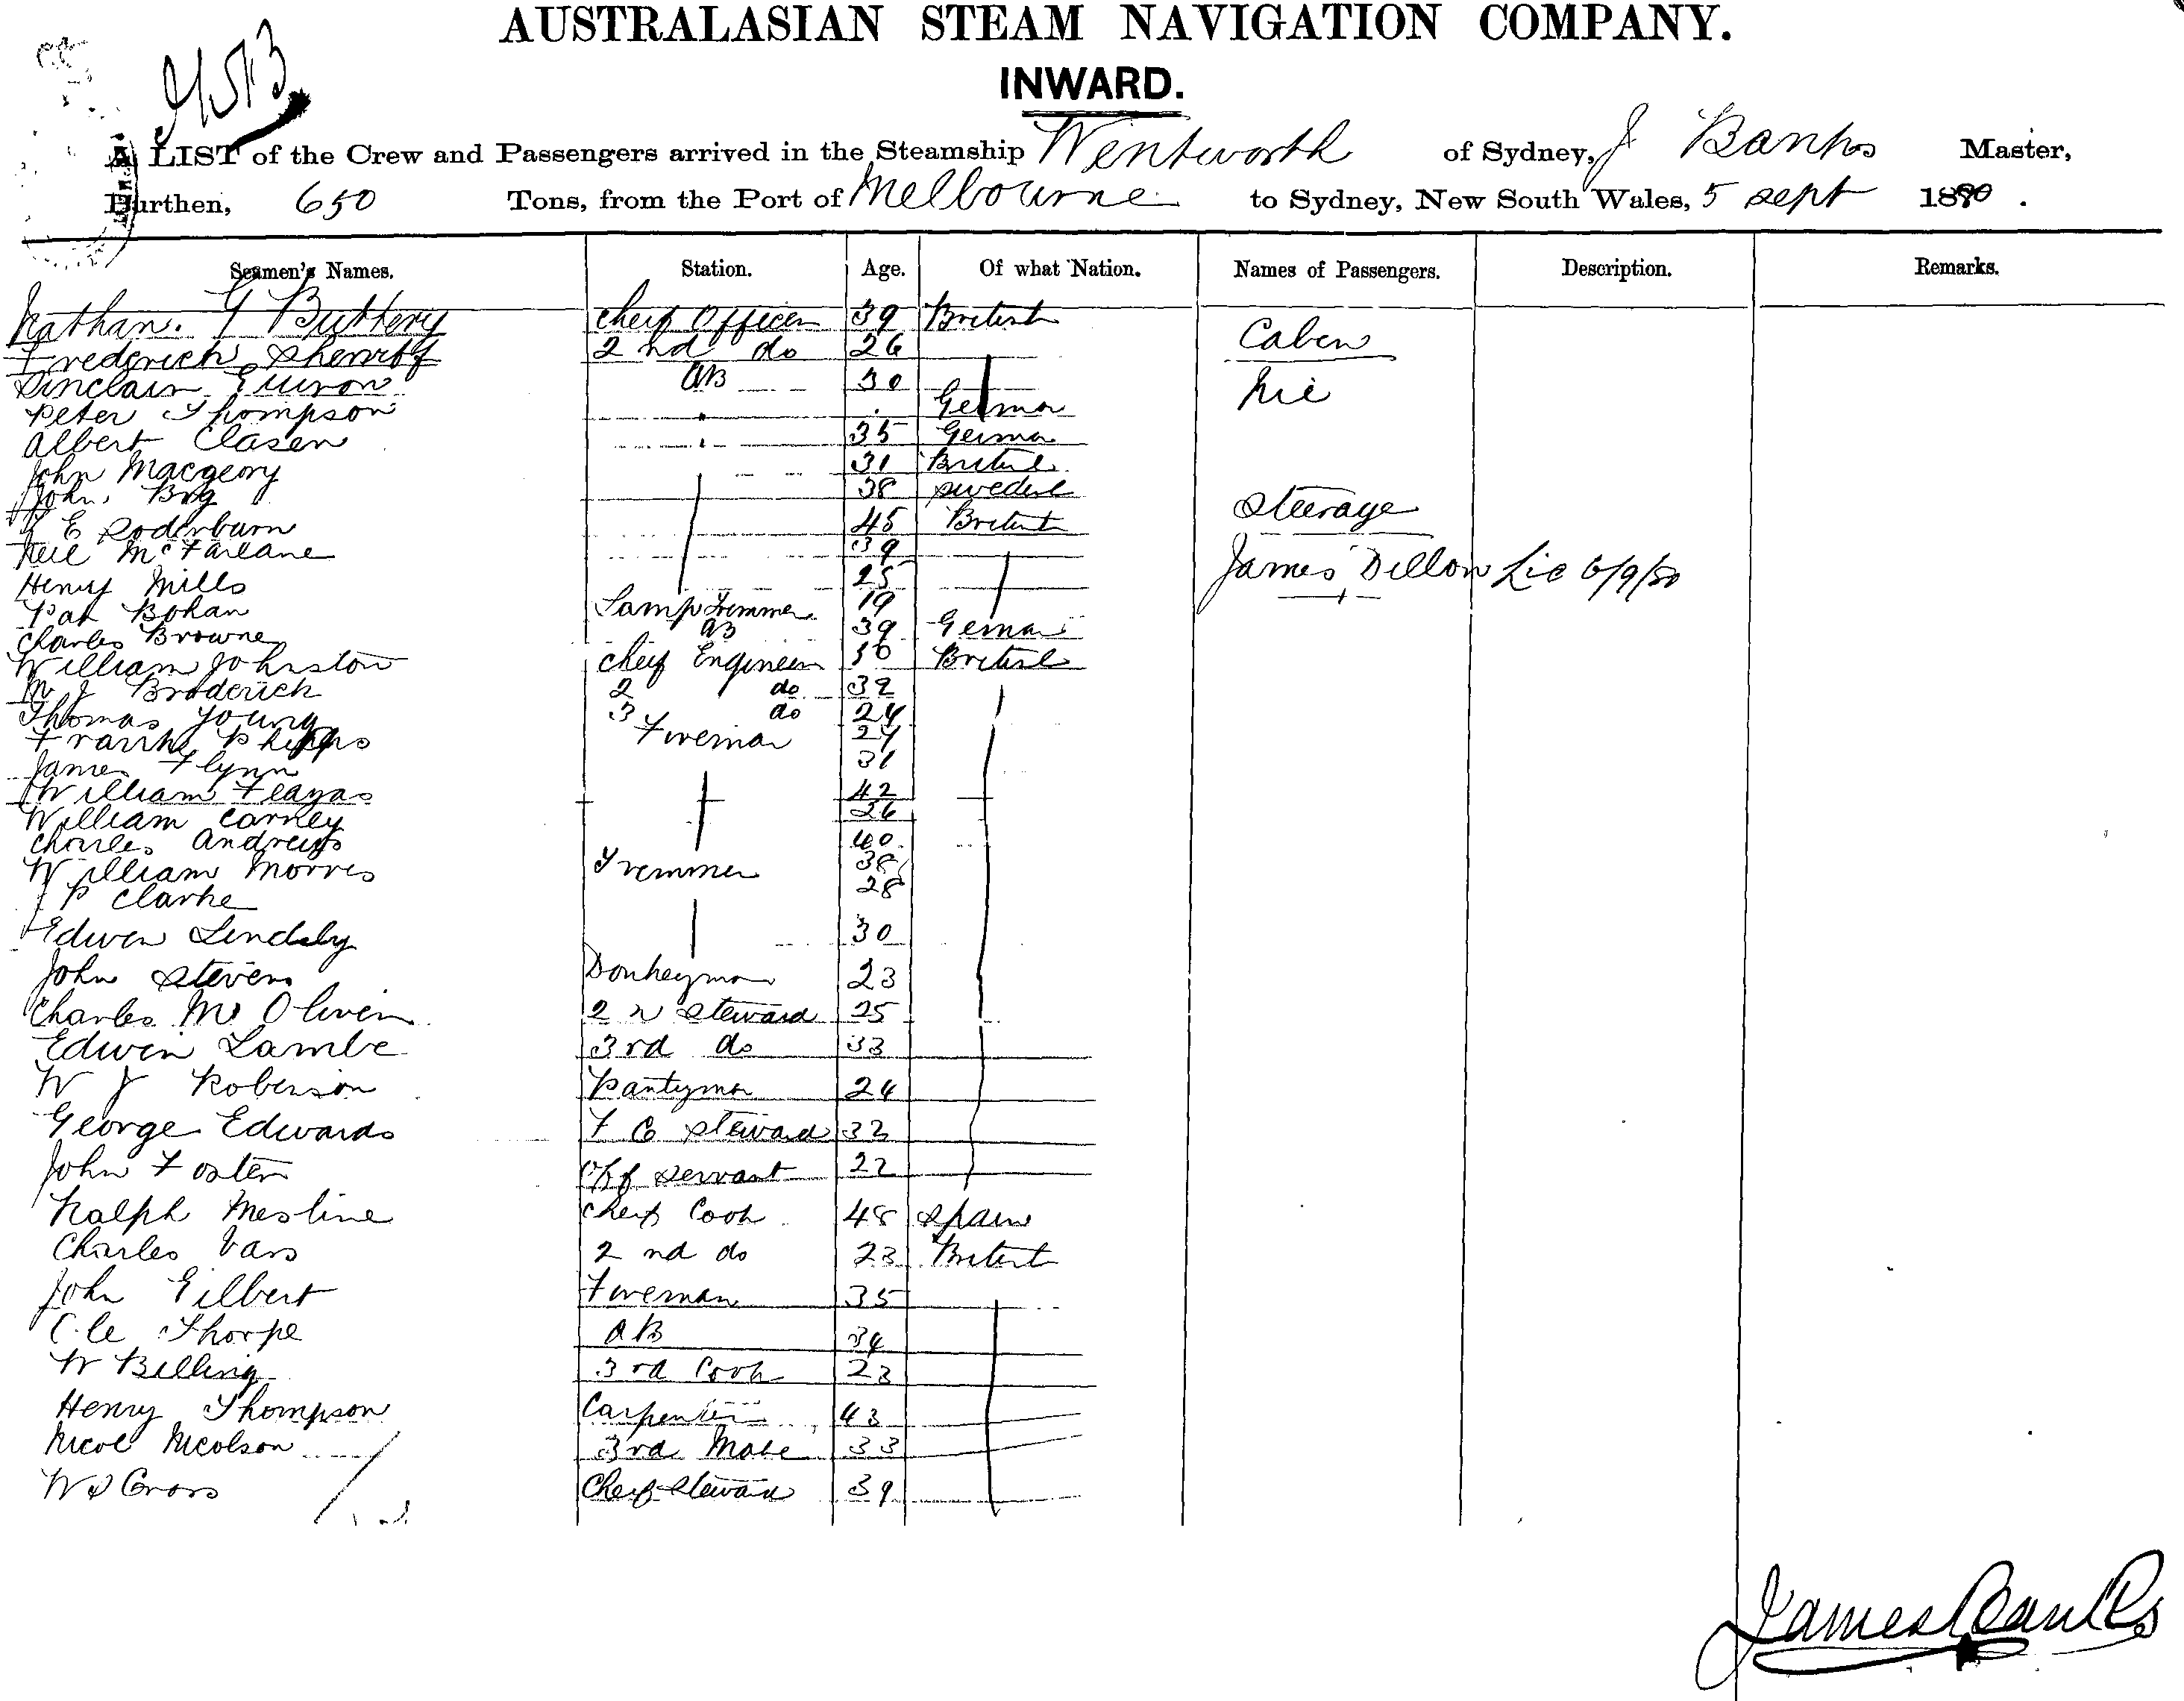 AUSTRALASIAN STEAM NAVIGATION COMPANY.
INWARD.
A LIST of the Crew and Passengers arrived in the Steamship Wentworth of Sydney, J Banks Master,
Burthen, 650 Tons, from the Port of Melbourne to Sydney, New South Wales, 5 Sept 1880.
Seamen's Names. Station. Age. Of what Nation. Names of Passengers. Description. Remarks.
Nathan. G Buttery Cheif Officer 39 British
Cabin
Frederick Sherriff 2nd do 26
Sinclair AB 30 Nil
Peter Thompson German
Albert Clasen 35 German
John Macgeory 31 British
John Brg 38 Swedish
Steerage
E Soderburn 45 British
Neil McFarlane 39
James Dillon Lic 6/9/80
Henry Mills 25
Pat Bohan Lamp Trimmer 19
Charles Browne AB 39 German
William Johnston Cheif Engineer 36 British
M J Broderick 2 do 32
Thomas Young 3 do 24
Frank Phipps Fireman 24
James Flynn 31
William Flayas 42
William Carney 26
Charles Andrews 40
William Morris Trimmer 38
J P Clarke 28
Edwin Lindsly 30
John Stevens Donkeyman 23
Charles Mc Oliver 2n Steward 25
Edwin Lambe 3rd do 33
W J Roberson Pantyman 24
George Edwards F C Steward 32
John Foster Off Servant 22
Ralph Mesline Cheif Cook 48 Spain
Charles Vars 2nd do 23 British
John Gilbert Fireman 35
Thorpe AB 34
W Billing 3rd Cook 23
Henry Thompson Carpenter 43
Nicol Nicolson 3rd Mate 33
W S Cross Cheif Steward 39
James Banks